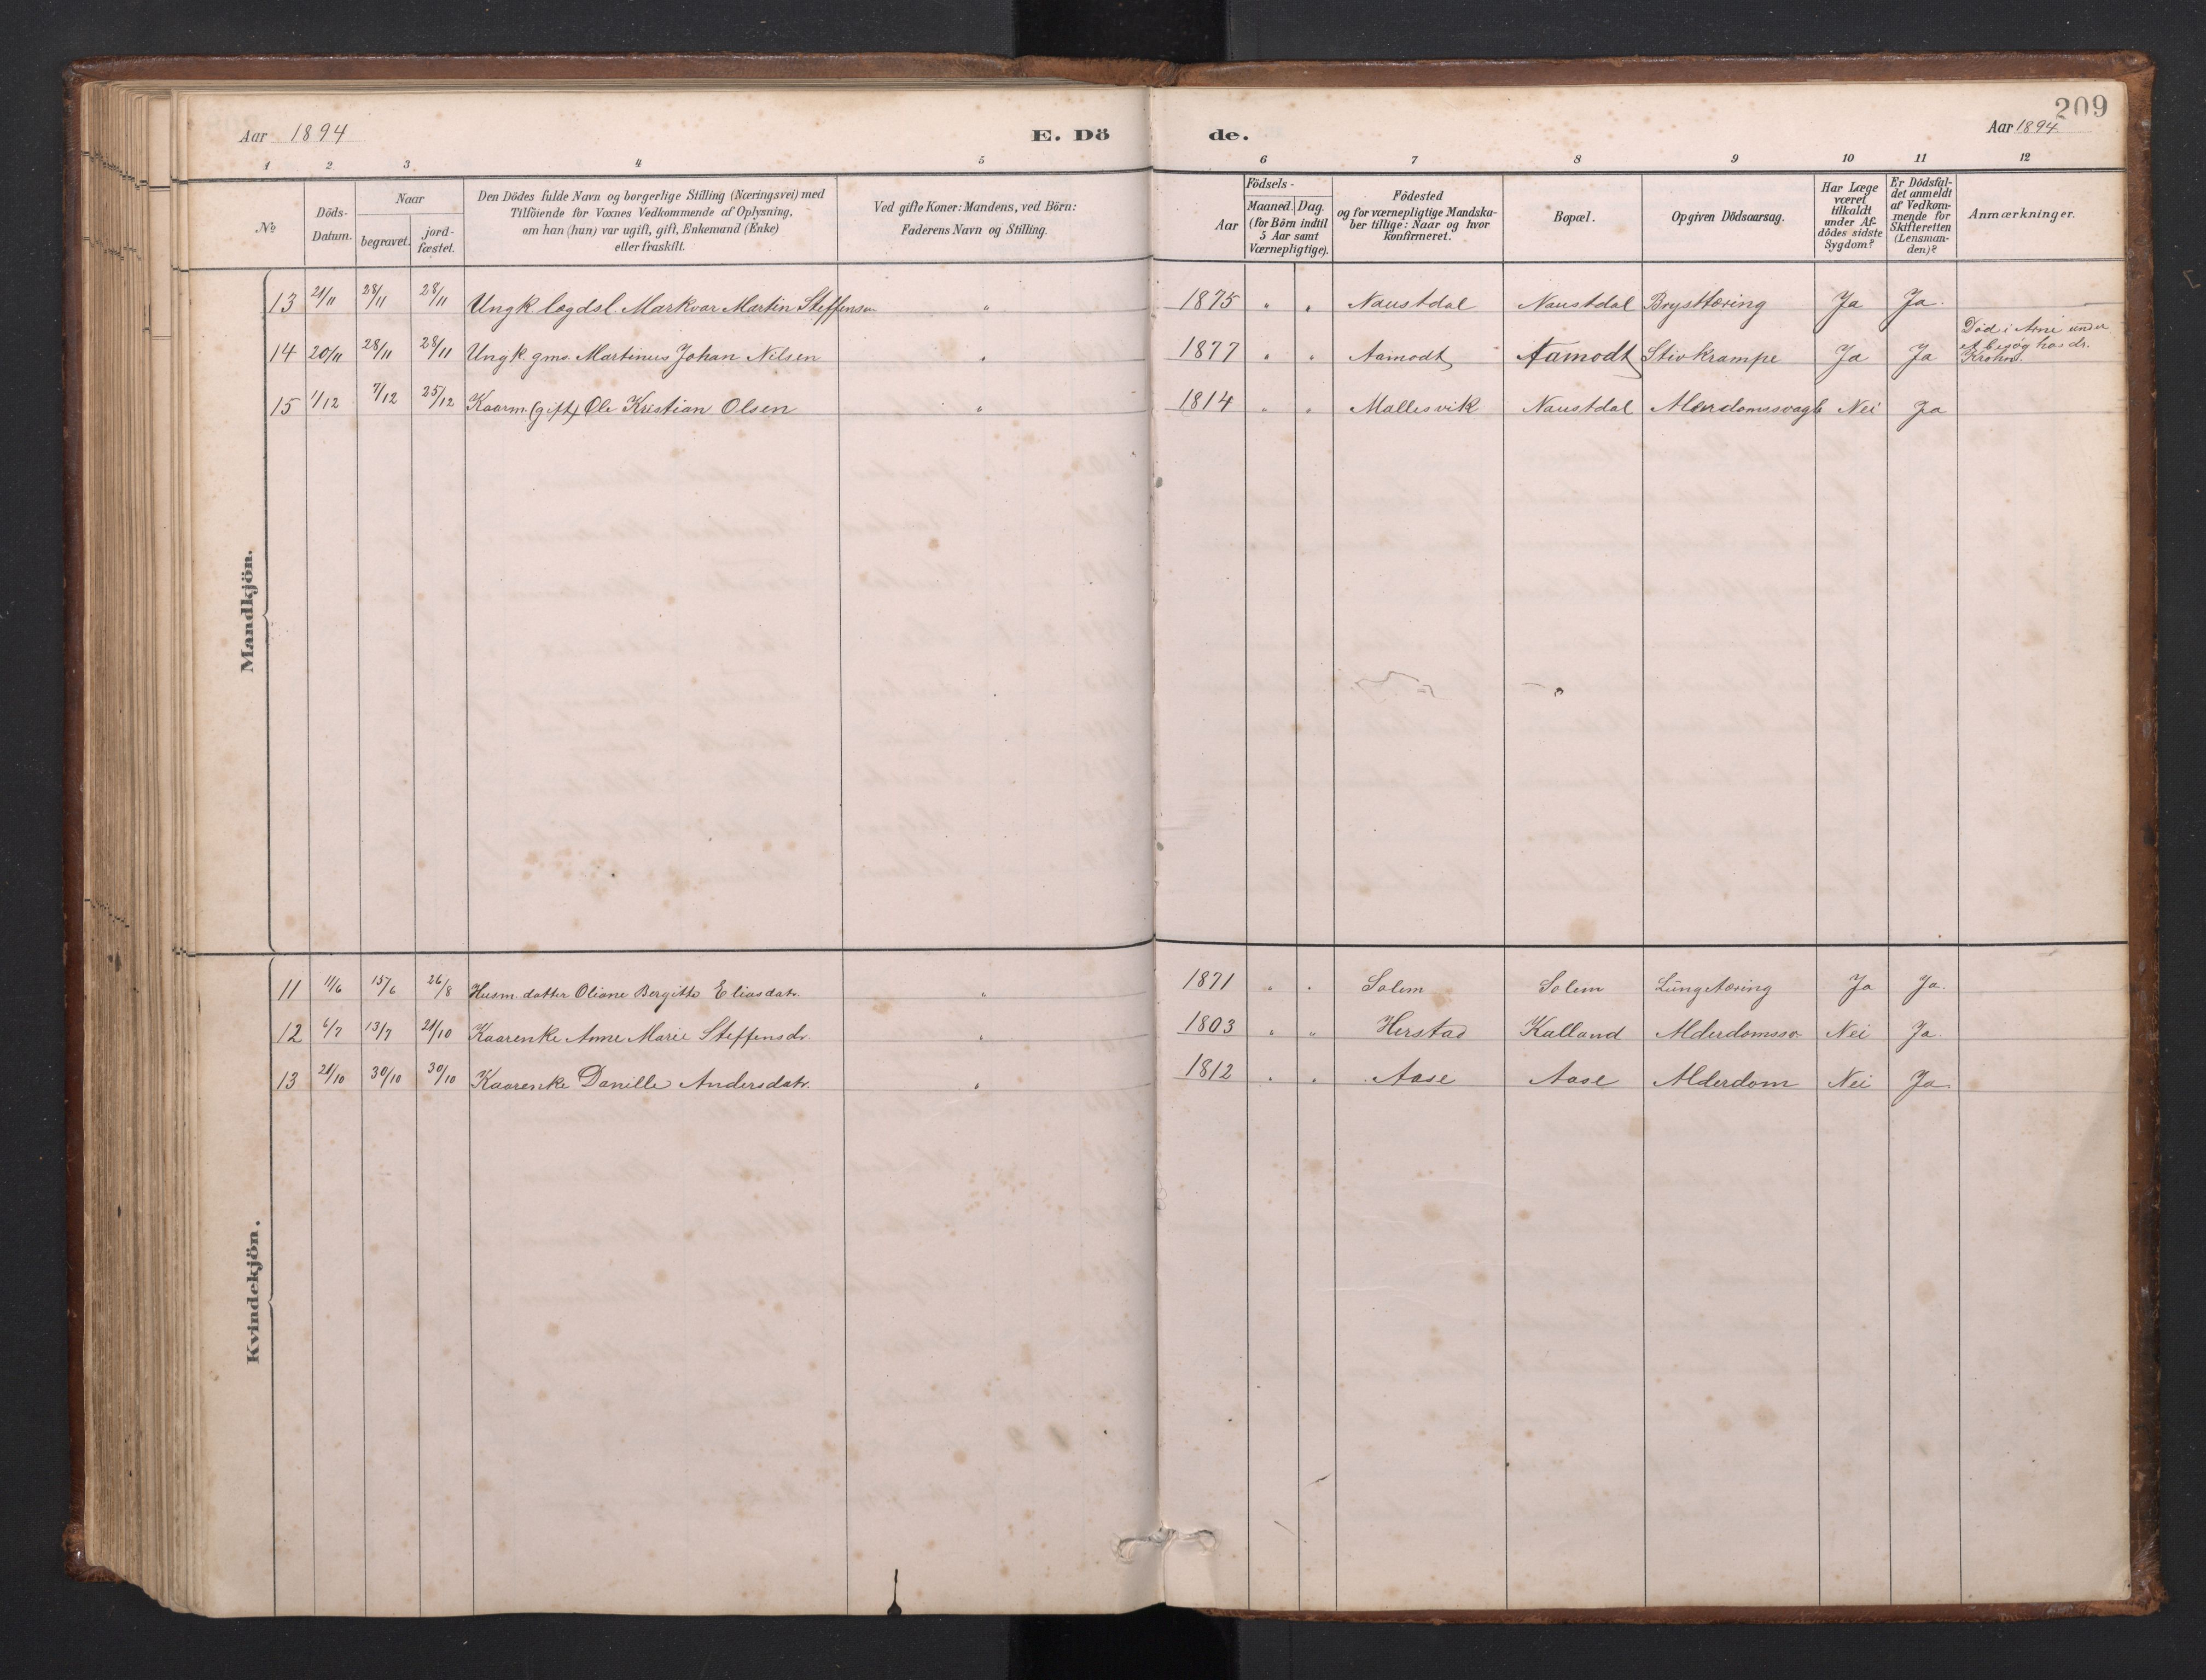 209
Aar 1894 E. Dö de. Aar 1894.
1 2 3 4 5 6 7 8 9 10 11 12
No
Döds-Datum.
Naar
begravet.
jord-fæstet.
Den Dödes fulde Navn og borgerlige Stilling (Næringsvei) med
Tilföiende for Voxnes Vedkommende af Oplysning,
om han (hun) var ugift, gift, Enkemand (Enke)
eller fraskilt.
Ved gifte Koner: Mandens, ved Börn:
Faderens Navn og Stilling.
Födsels-
Aar
Maaned. Dag.
(for Börn indtil
5 Aar samt
Værnepligtige).
Födested
og for værnepligtige Mandska-
ber tillige: Naar og hvor
konfirmeret.
Bopæl.
Opgiven Dödsaarsag.
Har Læge
været
tilkaldt
under Af-
dödes sidste
Sygdom?
Er Dödsfal-
det anmeldt
af Vedkom-
mende for
Skifteretten
(Lensman-
den)?
Anmærkninger.
Mandkjön.
13 21/11 28/11 28/11 Ungk. lægdsl. Markvar Martin Steffensen " 1875 " " Naustdal Naustdal Brysttæring Ja Ja.
14 20/11 28/11 28/11 Ungk. gms. Martinus Johan Nilsen " 1877 " " Aamodt Aamodt Stivkrampe Ja Ja Död i Arne under
et besøg hos dr.
Krohn.
15 1/12 7/12 25/12 Kaarm. (gift) Ole Kristian Olsen " 1814 " " Mallesvik Naustdal Alerdomssvagh Nei Ja
Kvindekjön.
11 11/6 15/6 26/8 Husm. datter Oliane Bergitte Eliasdatr. " 1871 " " Solem Solem Lungetæring Ja Ja.
12 6/7 13/7 21/10 Kaarenke Anne Marie Steffensdr. " 1803 " " Herstad Kalland Alderdomssv. Nei Ja.
13 21/10 30/10 30/10 Kaarenke Danille Andersdatr. " 1812 " " Aase Aase Alderdom Nei Ja.